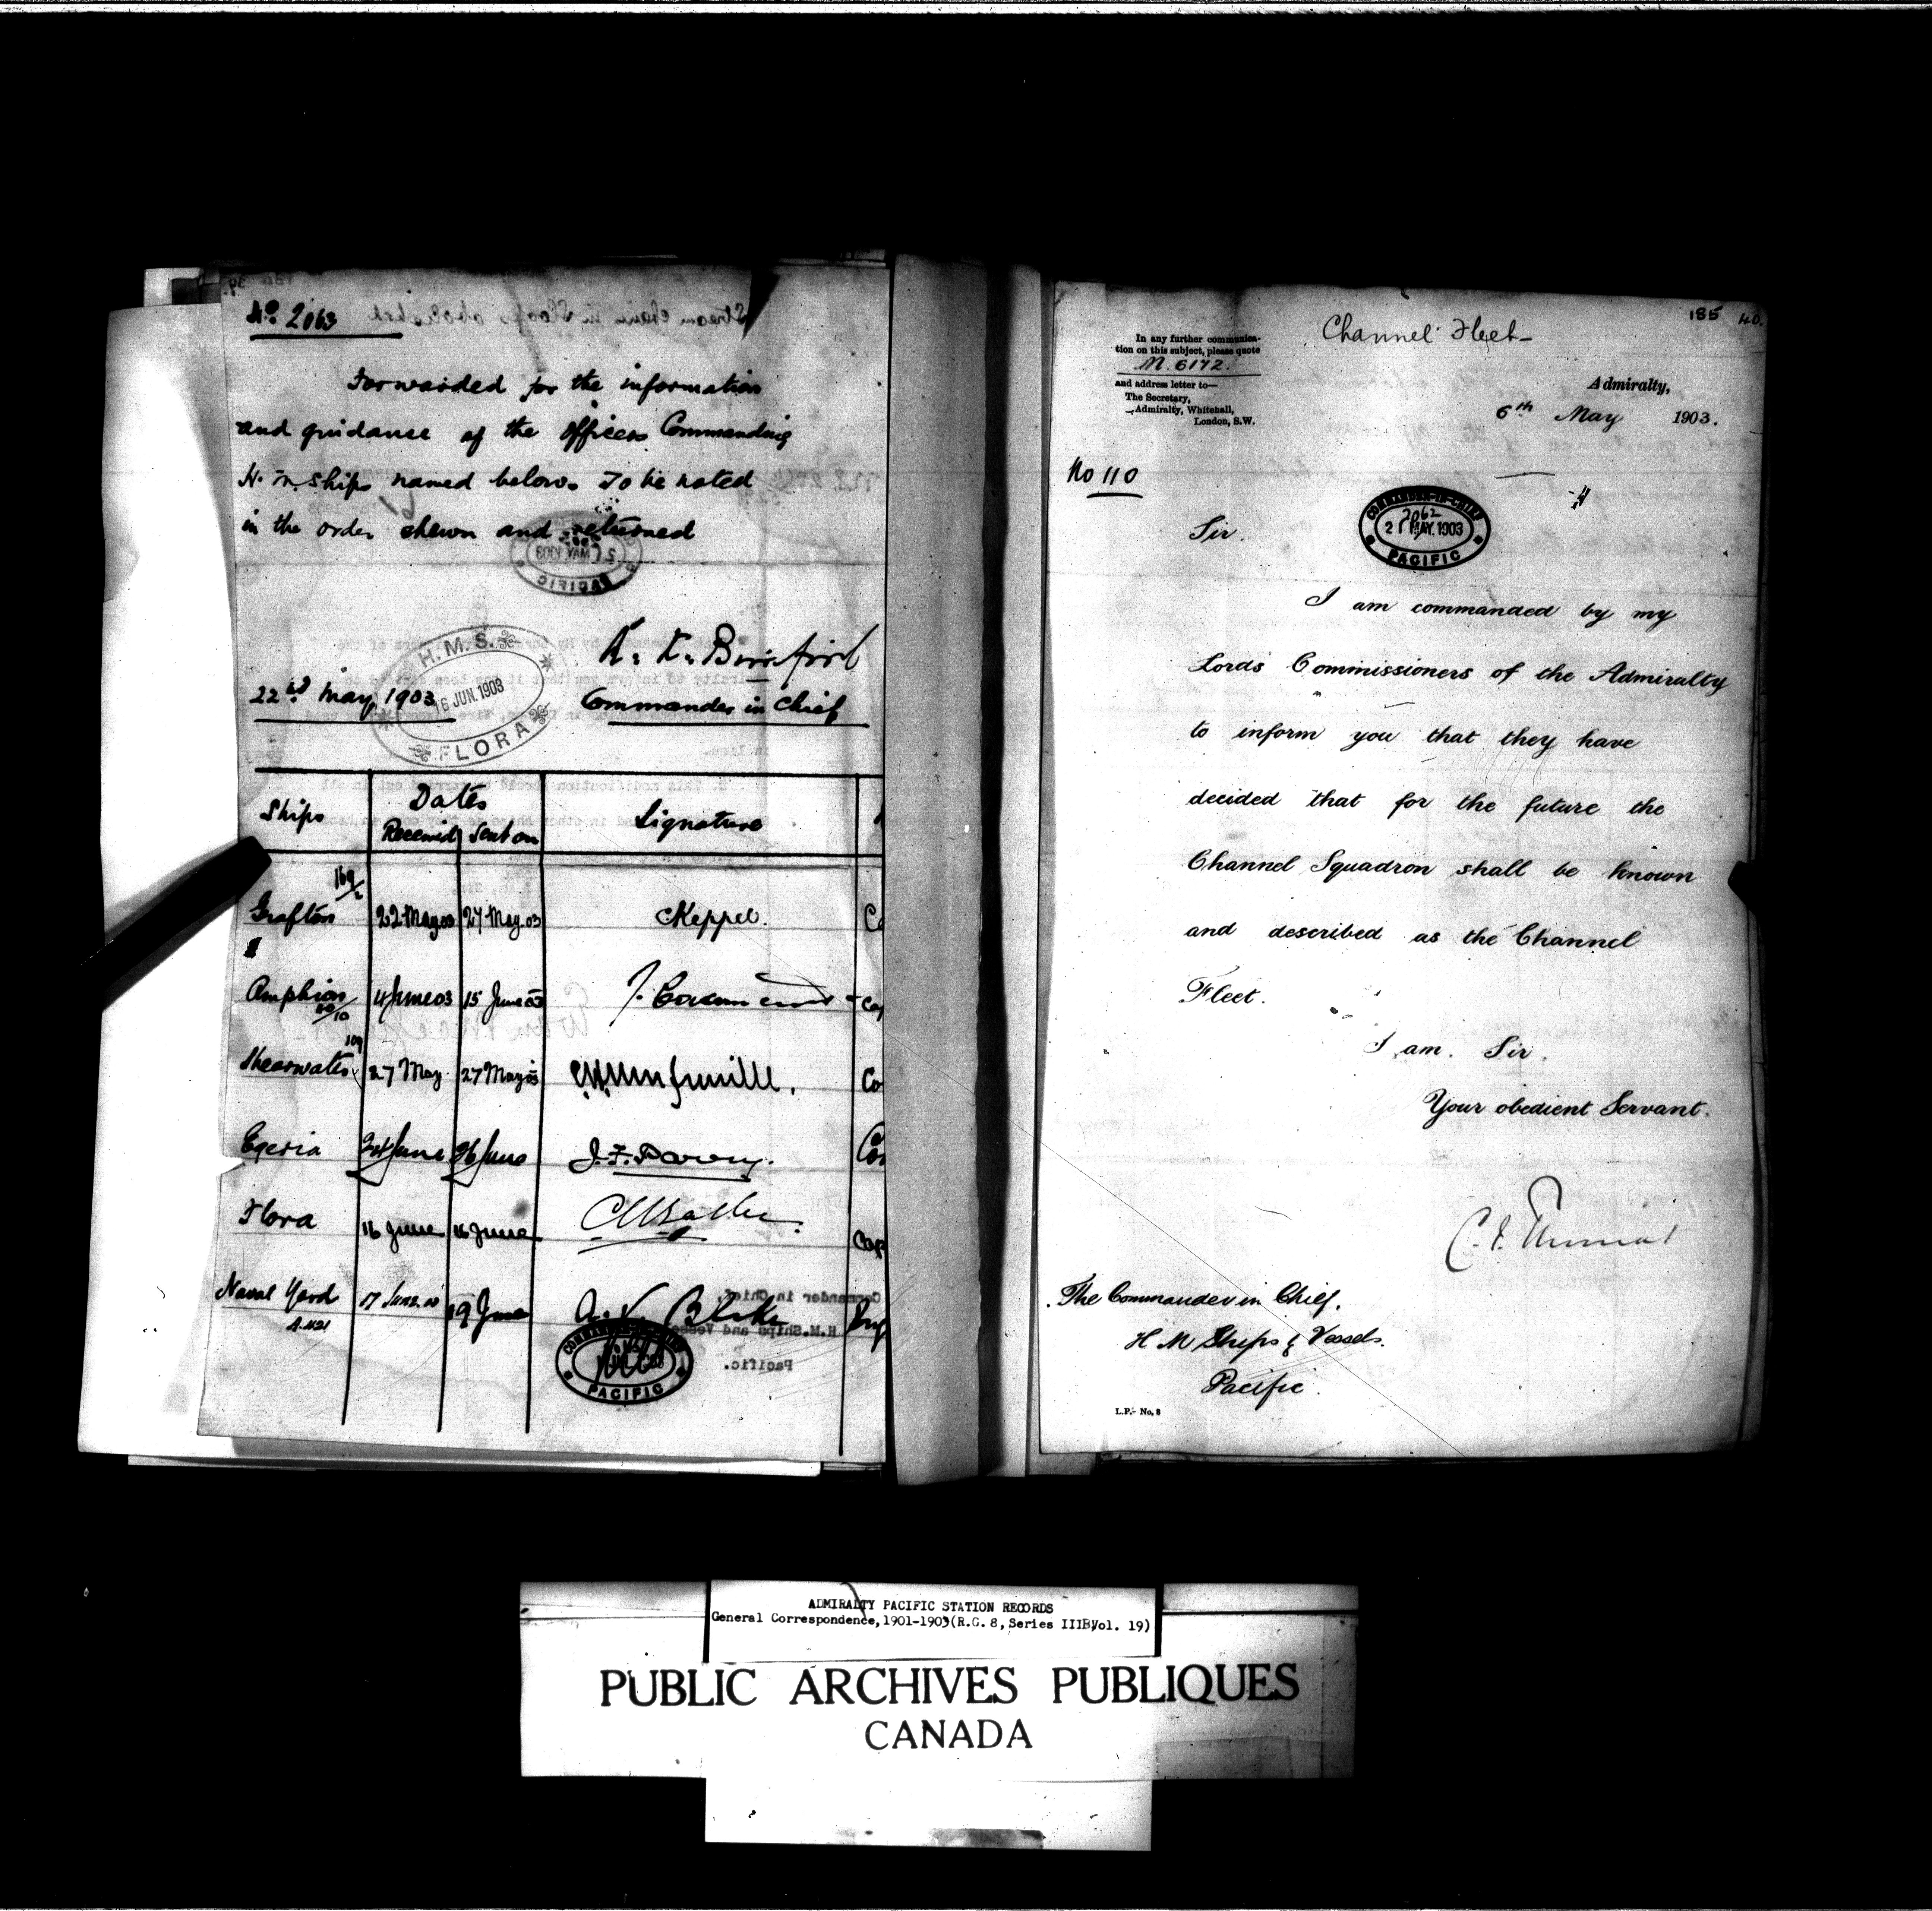 No. 2063
Forwarded for the information
and guidance of the Officers Commanding
H. M. Ships named below. To be noted
in the order shewn and returned
Commander in Chief
22nd May, 1903
H.M.S.
16 JUN. 1903
FLORA
Ships Dates Signature
Received Sent on
Grafton 22 May 03 27 May. 03 Keppel.
Amphion 4 June 03 15 June 03
Shearwater 27 May 27 May 03
Egeria 24 June 26 June J. F. Parry.
Flora 16 June 16 June
Naval Yard 17 June 19 June
PACIFIC
185 40.
Channel Fleet
In any further communica-
tion on this subject, please quote
M. 6172.
and address letter to—
The Secretary,
Admiralty, Whitehall,
London, S.W.
Admiralty,
6th May 1903.
No 110
COMMANDER-IN-CHIEF
2062
21 MAY. 1903
PACIFIC
Sir.
I am commanded by my
Lords Commissioners of the Admiralty
to inform you that they have
decided that for the future the
Channel Squadron shall be known
and described as the Channel
Fleet.
I am. Sir.
Your obedient Servant.
The Commander in Chief.
H M Ships & Vessels.
Pacific.
L.P.- No. 8
ADMIRALTY PACIFIC STATION RECORDS
General Correspondence, 1901-1903(R.G. 8, Series IIIB, Vol. 19)
PUBLIC ARCHIVES PUBLIQUES
CANADA